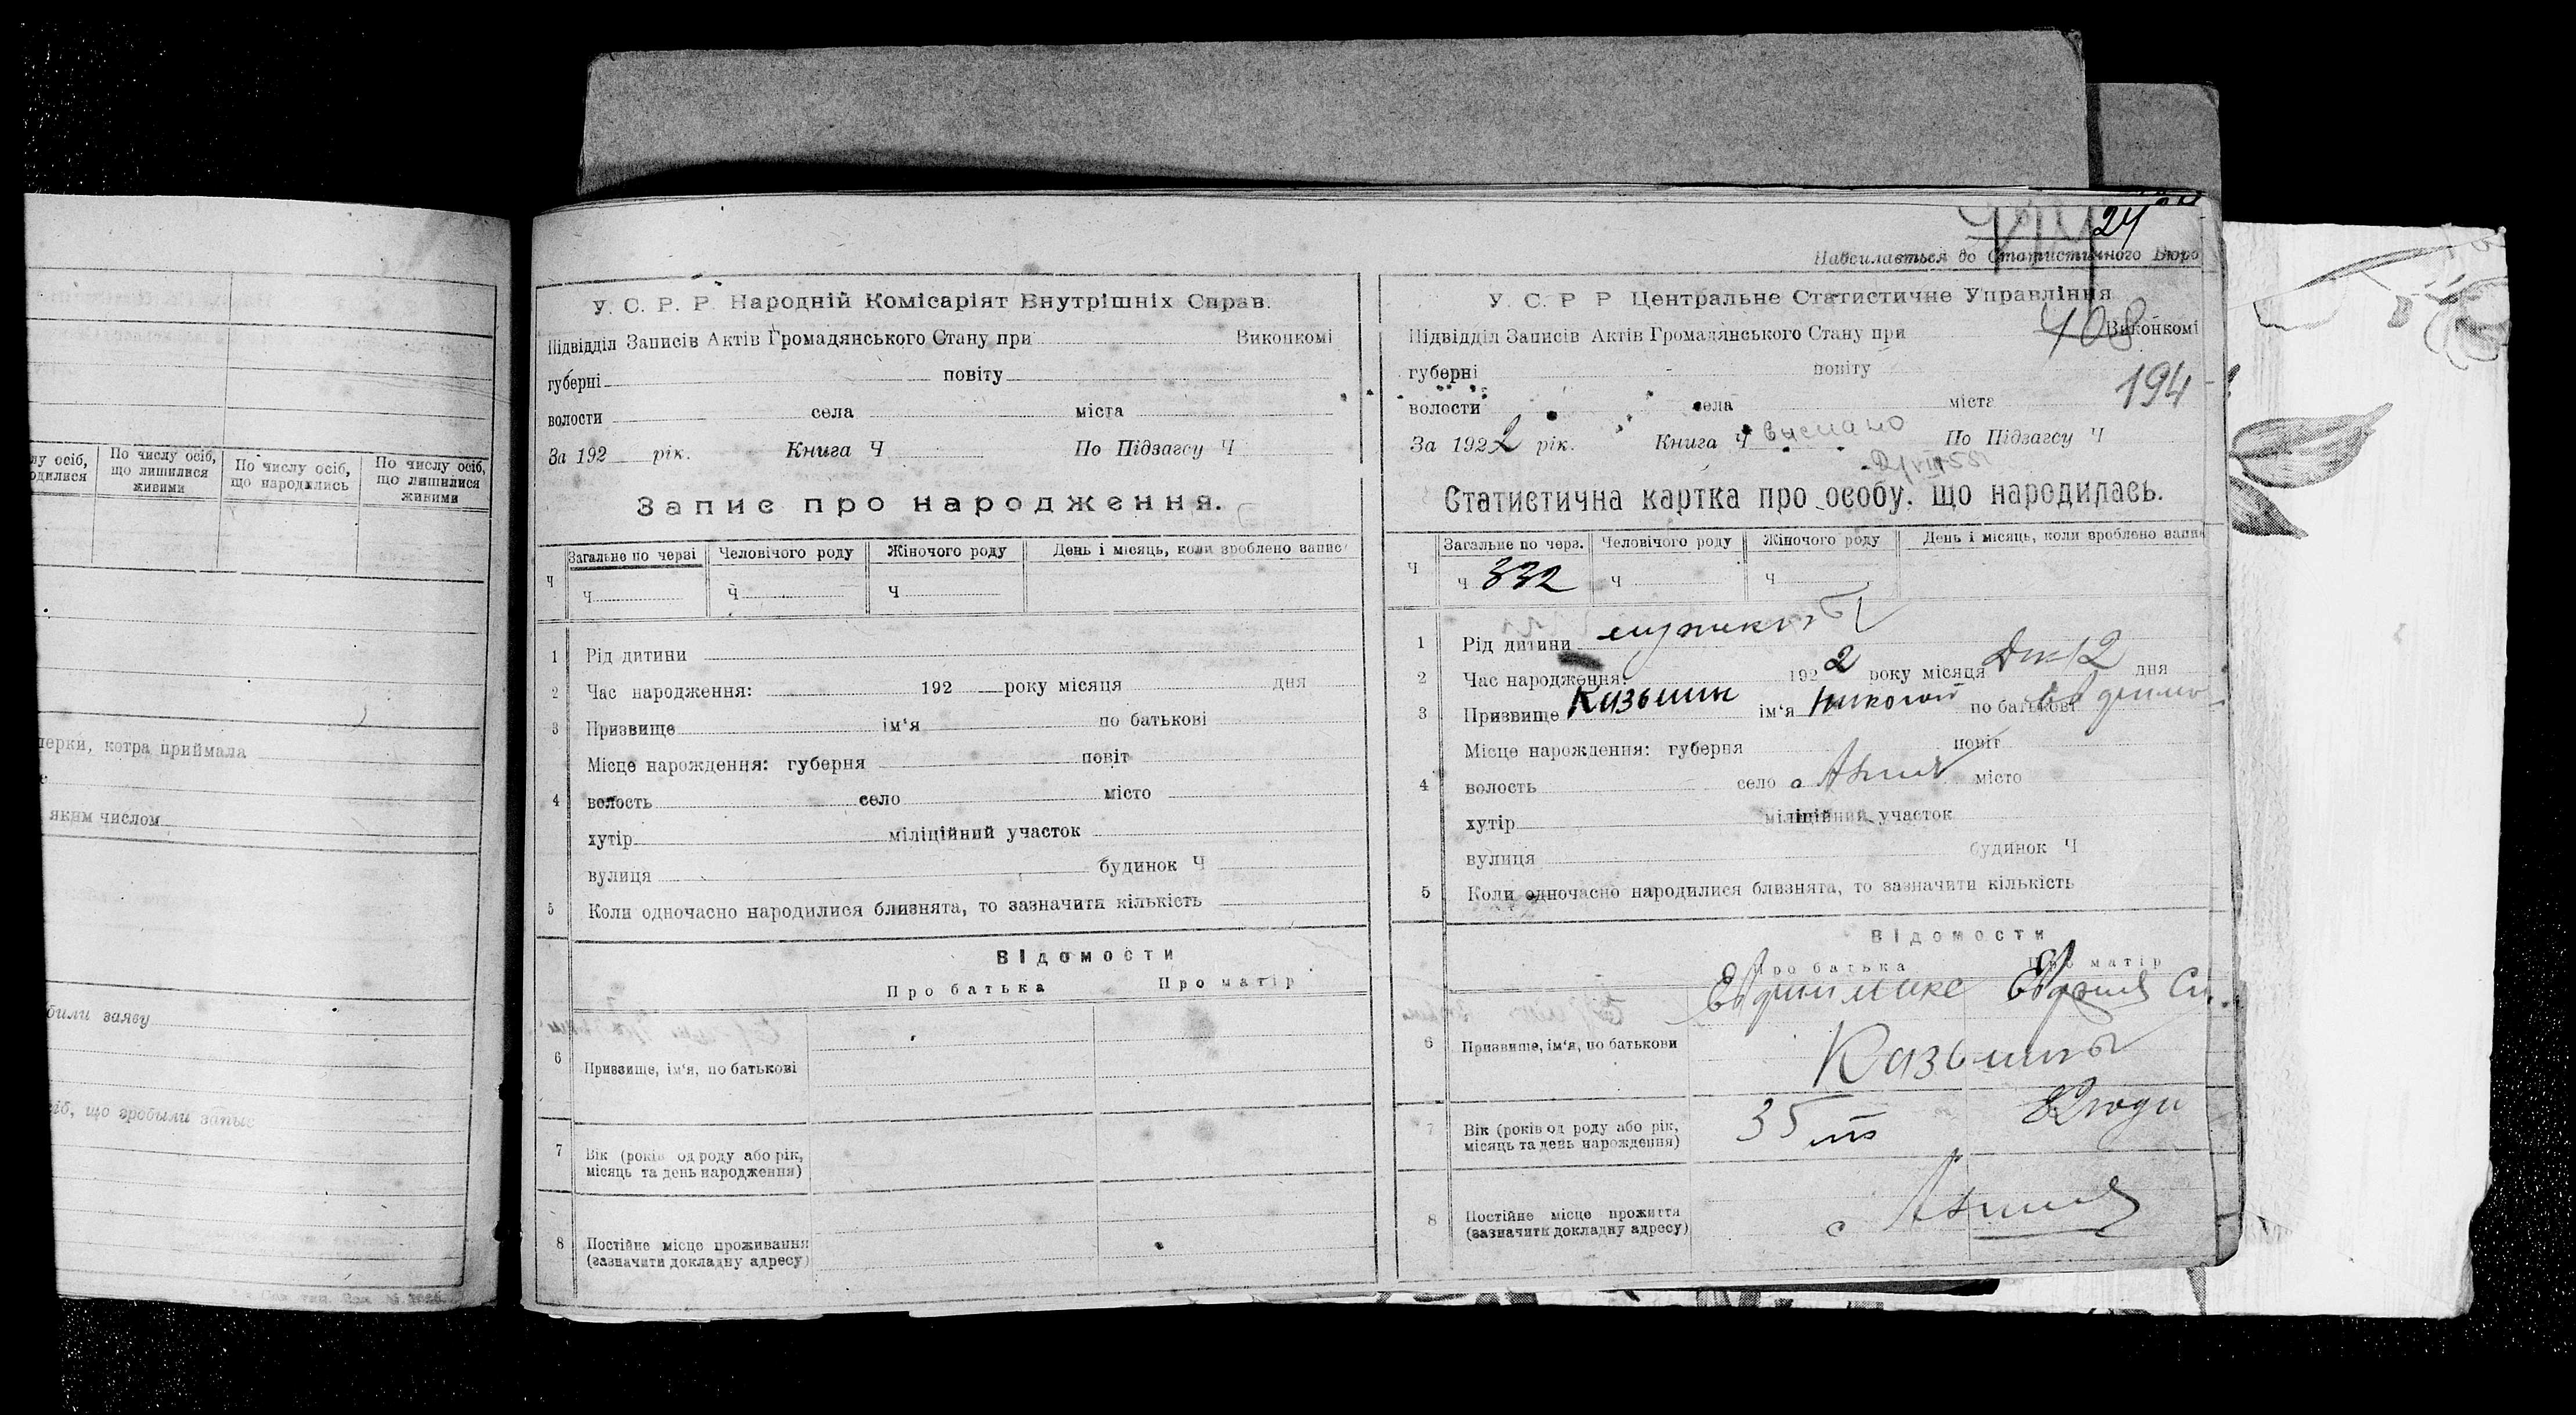 лу осіб,
одилися
По числу осіб,
що лишилися
живими
По числу осіб,
що народились
По числу осіб,
що лишилися
живими
перки, котра приймала
яким числом
били заяву
іб, що зробыли запыс
У. С. Р. Р. Народній Комісаріят Внутрішніх Справ.
Підвідділ Записів Актів Громадянського Стану при Виконкомі
губерні повіту
волости села міста
За 192 рік. Книга Ч По Підзагсу Ч
Запис про народження.
Ч Загальне по черзі Человічого роду Жіночого роду День і місяць, коли зроблено запис
Ч Ч Ч
1 Рід дитини
2 Час народження: 192 року місяця дня
3 Призвище ім‘я по батькові
Місце народження: губерня повіт
4 волость село місто
хутір міліційний участок
вулиця будинок Ч
5 Коли одночасно народилися близнята, то зазначити кількість
Відомости
Про батька Про матір
6 Призвище, ім‘я, по батькові
7 Вік (років од роду або рік,
місяць та день народження)
8 Постійне місце проживання
(зазначити докладну адресу)
24
Надсилається до Статистичного Бюро
У. С. Р Р Центральне Статистичне Управління
Підвідділ Записів Актів Громадянського Стану при 408 Виконкомі
губерні повіту
194
волости села міста
За 1922 рік. Книга Ч выслано По Підзагсу Ч
Статистична картка про особу, що народилась.
Ч Загальне по черз. Человічого роду Жіночого роду День і місяць, коли зроблено запис
Ч 332 Ч Ч
1 Рід дитини
2 Час народження: 1922 року місяця Дек 12 дня
3 Призвище Казьмин ім‘я Николай по батькові
Місце нарождення: губерня повіт
4 волость село місто
хутір міліційний участок
вулиця будинок Ч
5 Коли одночасно народилися близнята, то зазначити кількість
Відомости
Про батька Про матір
6 Призвище, ім‘я, по батькови
Казьмины
7 Вік (років од роду або рік,
місяць та день нарождення)
35 лет
32 года
8 Постійне місце прожиття
(зазначити докладну адресу)
с